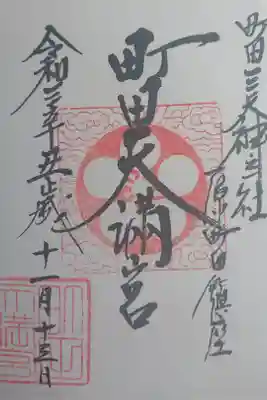 町田三天神之社
原町田鎮座
町田天満宮
令和三辛丑歳 十一月十三日